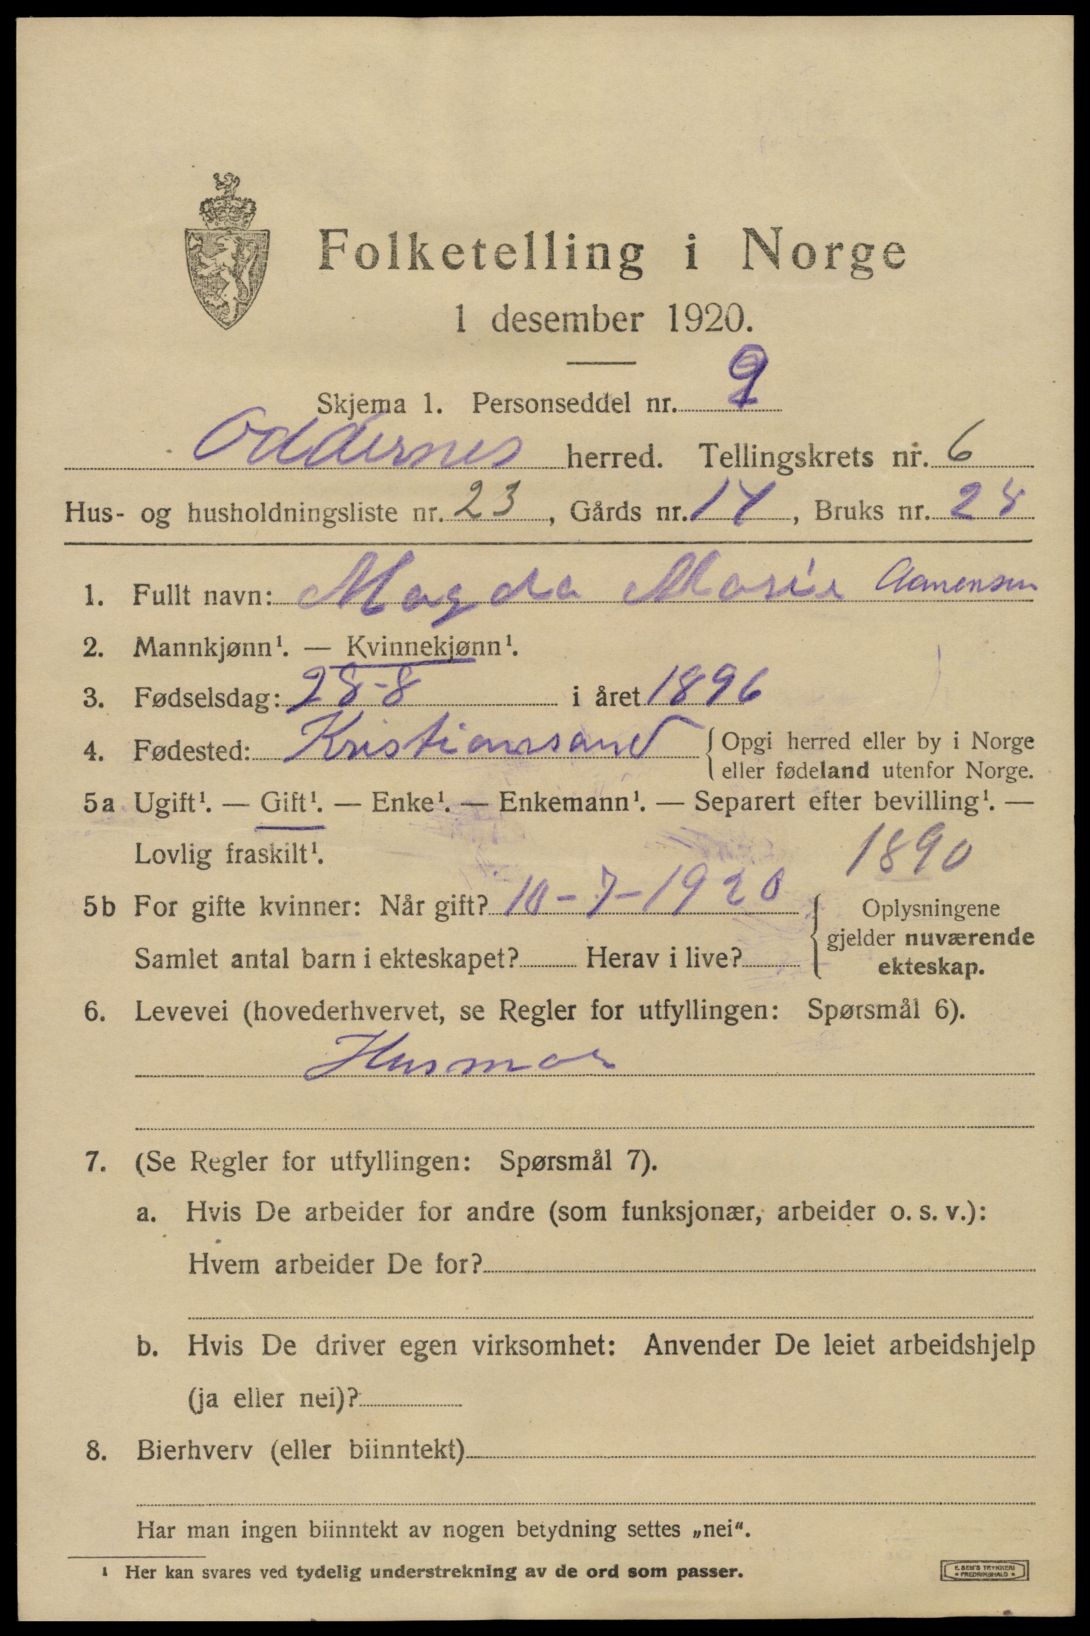 Folketelling i Norge
1 desember 1920.
Skjema 1. Personseddel nr. 2
Oddernes herred. Tellingskrets nr. 6
Hus- og husholdningsliste nr. 23, Gårds nr. 14, Bruks nr. 28
1. Fullt navn: Magda Marie Aamensen
2. Mannkjønn¹. — Kvinnekjønn¹.
3. Fødselsdag: 28-8 i året 1896
4. Fødested: Kristiansand {Opgi herred eller by i Norge
eller fødeland utenfor Norge.
5a Ugift¹. — Gift¹. — Enke¹. — Enkemann¹. — Separert efter bevilling¹. —
Lovlig fraskilt¹. 1890
5b For gifte kvinner: Når gift? 10-7-1920 { Oplysningene
gjelder nuværende
Samlet antal barn i ekteskapet? Herav i live? ekteskap.
6. Levevei (hovederhvervet, se Regler for utfyllingen: Spørsmål 6).
Husmor
7. (Se Regler for utfyllingen: Spørsmål 7).
a. Hvis De arbeider for andre (som funksjonær, arbeider o. s. v.):
Hvem arbeider De for?
b. Hvis De driver egen virksomhet: Anvender De leiet arbeidshjelp
(ja eller nei)?
8. Bierhverv (eller biinntekt)
Har man ingen biinntekt av nogen betydning settes „nei“.
¹ Her kan svares ved tydelig understrekning av de ord som passer.
E. SEM'S TRYKKERI
• FREDRIKSHALD •